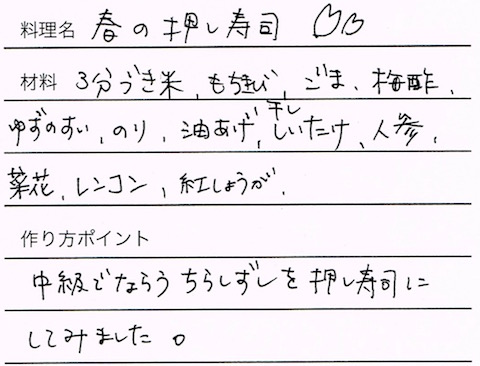 料理名 春の押し寿司
材料 3分づき米、もちきび、ごま、梅酢、
ゆずのすい、のり、油あげ、干ししいたけ、人参、
菜花、レンコン、紅しょうが、
作り方ポイント
中級でならうちらしずしを押し寿司に
してみました。